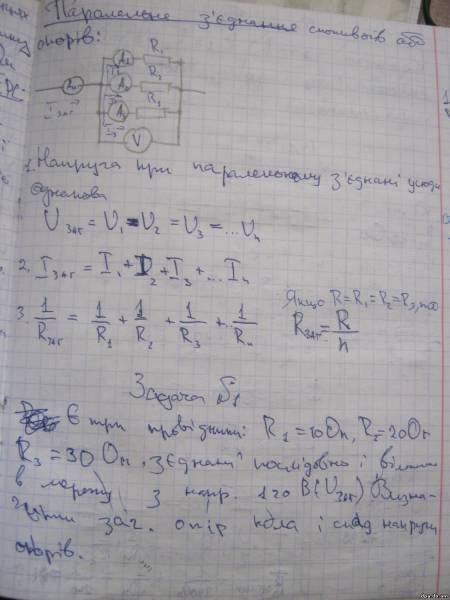 Паралельне з'єднання спожив або
опорів:
A₁ R₁
A₂ R₂
A₃ R₃
I заг
I₃
V
1. Напруга при паралельному з'єднані усюди
однакова
U заг = U₁ = U₂ = U₃ = ...Uₙ
2. I заг = I₁ + I₂ + I₃ + ... Iₙ
Якщо R=R₁=R₂=R₃, то
3. 1/Rзаг = 1/R₁ + 1/R₂ + 1/R₃ + ... 1/Rₙ
Rзаг = R/n
Задача №1
Є три провідники: R₁ = 10 Ом, R₂ = 20 Ом
R₃ = 30 Ом, з'єднані послідовно і
в мережу з напр. 120 В (Uзаг) Визна-
чити заг. опір кола і спад напруги
опорів.